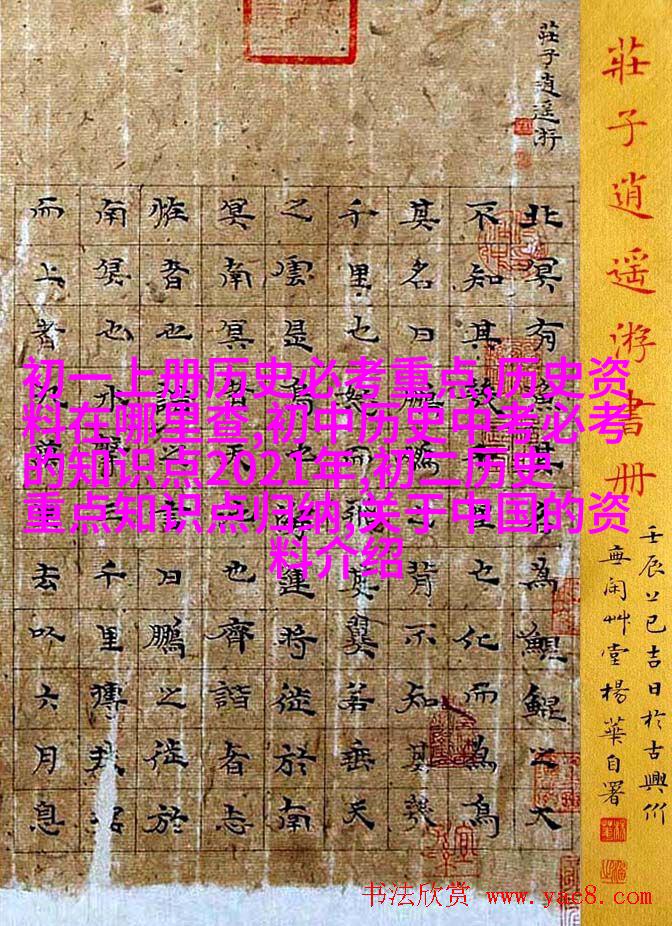 莊子逍遥游書册
壬辰上巳吉日於古興竹
西閑艸堂楊華自署
莊子逍遥游
北冥有魚其名為鯤鯤之大
不知其幾千里也化而為鳥
其名曰鵬鵬之背不知其幾
千里也怒而飛其翼若垂天
之雲是鳥也海運將徙於南
冥南冥者天池也齊諧者志
怪者也諧之言曰鵬之徙於
南冥也水擊三千里摶扶摇
而上者九萬里去以六月息
初一上册历史必考重点,历史资
料在哪里查,初中历史中考必考
的知识点2021年,初二历史
重点知识点归纳,关于中国的资
料介绍
书法欣赏 www.yac8.com